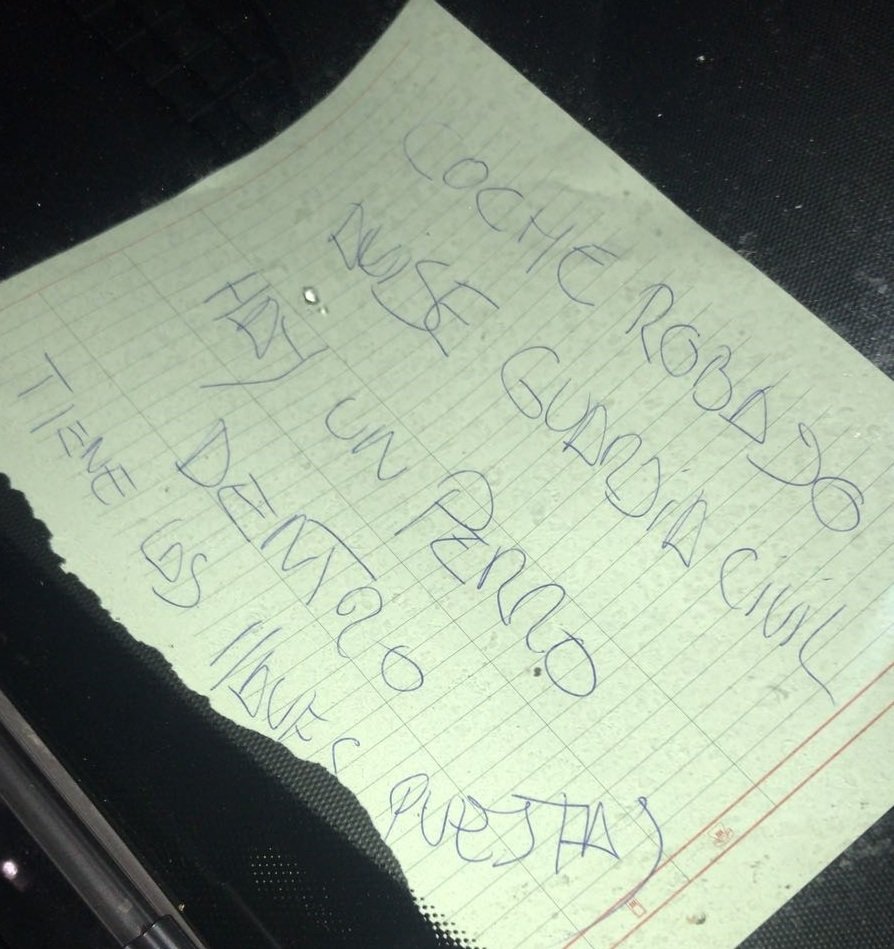 COCHE ROBADO
AVISE GUARDIA CIVIL
HAY UN PERRO
DENTRO
TIENE LAS llAVES PUESTAS